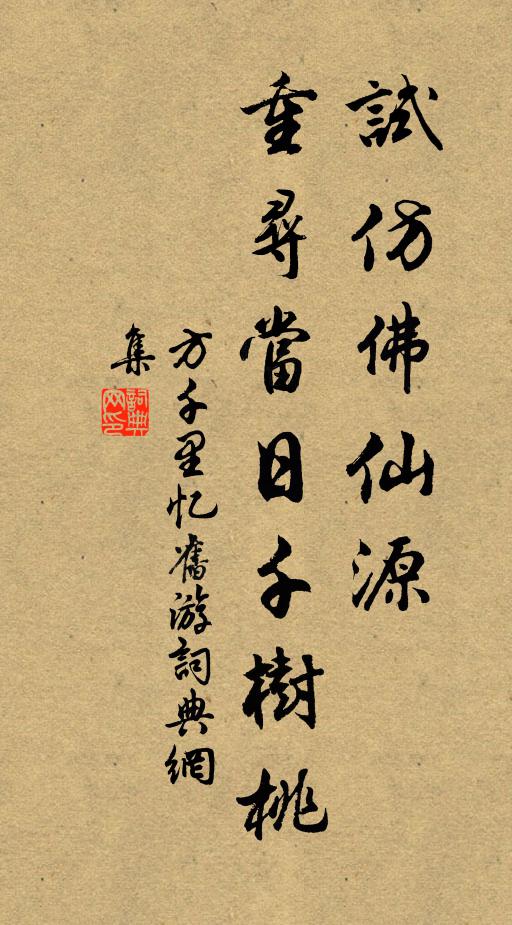 試仿佛仙源
重尋當日千樹桃
方千里忆舊游詞典網
集
詞典网印